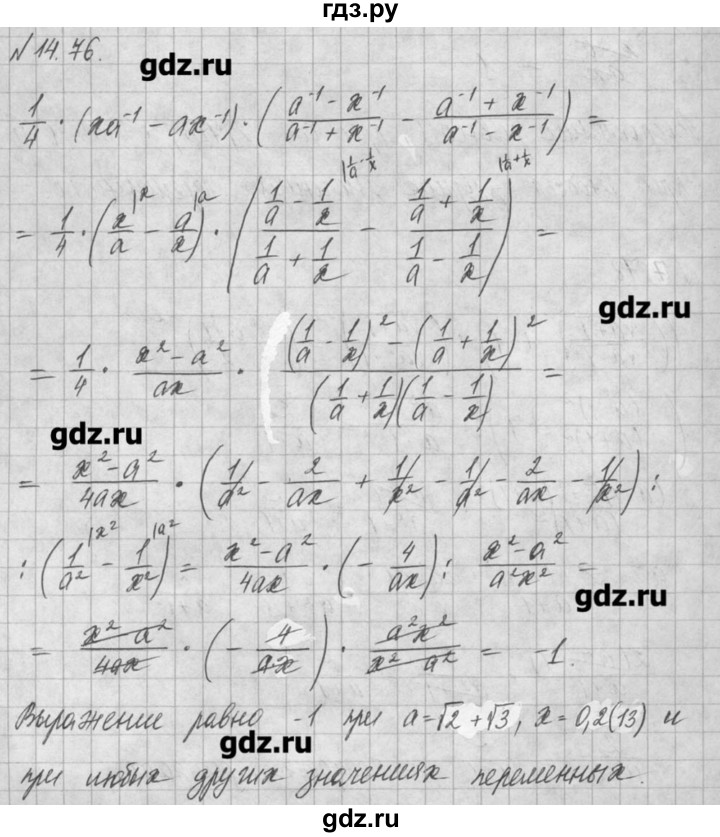 гдз.ру
№ 14.76.
gdz.ru
1/4 · (xa⁻¹ − ax⁻¹) · ((a⁻¹ − x⁻¹)/(a⁻¹ + x⁻¹) − (a⁻¹ + x⁻¹)/(a⁻¹ − x⁻¹)) =
= 1/4 · (x/a |x − a/x |a) · ((1/a − 1/x)/(1/a + 1/x) |1/a − 1/x − (1/a + 1/x)/(1/a − 1/x) |1/a + 1/x) =
gdz.ru
= 1/4 · (x² − a²)/(ax) · ((1/a − 1/x)² − (1/a + 1/x)²)/((1/a + 1/x)(1/a − 1/x)) =
gdz.ru
= (x² − a²)/(4ax) · (1/a² − 2/(ax) + 1/x² − 1/a² − 2/(ax) − 1/x²) :
: (1/a² |x² − 1/x² |a²) = (x² − a²)/(4ax) · (− 4/(ax)) : (x² − a²)/(a²x²) =
gdz.ru
= (x² − a²)/(4ax) · (− 4/(ax)) · (a²x²)/(x² − a²) = −1.
Выражение равно -1 при a = √2 + √3, x = 0,2(13) и
gdz.ru
при любых других значениях переменных.
gdz.ru